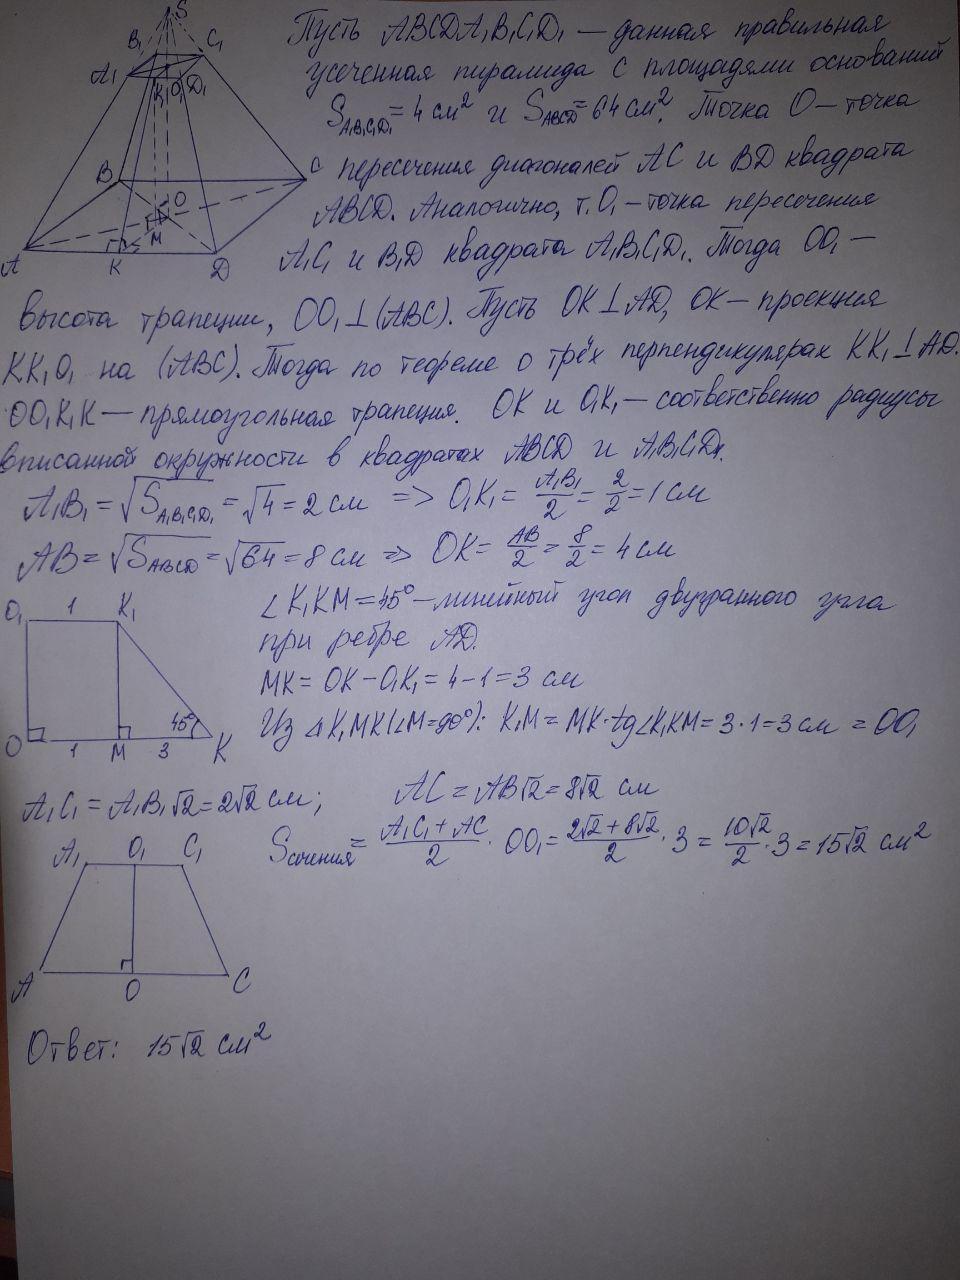 Пусть ABCDA₁B₁C₁D₁ — данная правильная
усеченная пирамида с площадями оснований
S_A₁B₁C₁D₁ = 4 см² и S_ABCD = 64 см². Точка O — точка
пересечения диагоналей AC и BD квадрата
ABCD. Аналогично, т. O₁ — точка пересечения
A₁C₁ и B₁D квадрата A₁B₁C₁D₁. Тогда OO₁ —
высота трапеции, OO₁ ⊥ (ABC). Пусть OK ⊥ AD, OK — проекция
KK₁O₁ на (ABC). Тогда по теореме о трёх перпендикулярах KK₁ ⊥ AD.
OO₁K₁K — прямоугольная трапеция. OK и O₁K₁ — соответственно радиусы
вписанной окружности в квадратах ABCD и A₁B₁C₁D₁.
A₁B₁ = √S_A₁B₁C₁D₁ = √4 = 2 см => O₁K₁ = A₁B₁/2 = 2/2 = 1 см
AB = √S_ABCD = √64 = 8 см => OK = AB/2 = 8/2 = 4 см
∠K₁KM = 45° — линейный угол двугранного угла
при ребре AD.
MK = OK − O₁K₁ = 4 − 1 = 3 см
Из △K₁MK (∠M = 90°): K₁M = MK · tg∠K₁KM = 3 · 1 = 3 см = OO₁
A₁C₁ = A₁B₁√2 = 2√2 см; AC = AB√2 = 8√2 см
Sсечения = (A₁C₁ + AC)/2 · OO₁ = (2√2 + 8√2)/2 · 3 = 10√2/2 · 3 = 15√2 см²
Ответ: 15√2 см²
S
B₁ C₁
A₁ K₁ O₁ D₁
B C
O
M
A K D
O₁ 1 K₁
45°
O 1 M 3 K
A₁ O₁ C₁
A O C